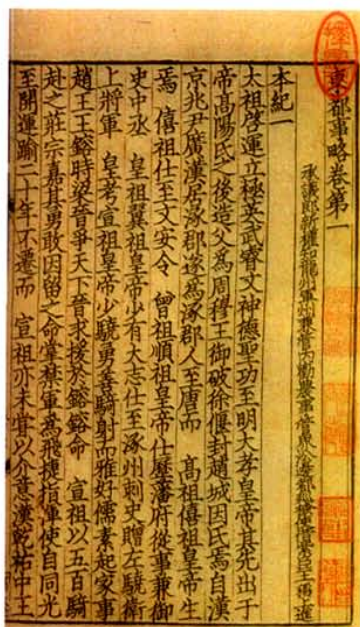 東都事略卷第一
承議郎新權知龍州軍州兼管內勸農事管界沿邊都巡檢使借紫臣王稱進
本紀一
太祖啓運立極英武睿文神德聖功至明大孝皇帝其先出于
帝高陽氏之後造父爲周穆王御破徐偃封趙城因氏焉自漢
京兆尹廣漢居涿郡遂爲涿郡人至唐而 高祖僖祖皇帝生
焉 僖祖仕至文安令 曾祖順祖皇帝仕歷藩府從事兼御
史中丞 皇祖翼祖皇帝少有大志仕至涿州刺史贈左驍衛
上將軍 皇考宣祖皇帝少驍勇善騎射而雅好儒素起家事
趙王王鎔時梁晉爭天下晉求援於鎔鎔命 宣祖以五百騎
赴之莊宗嘉其勇敢因留之命掌禁軍爲飛捷指揮使自同光
至開運踰二十年不遷而 宣祖亦未嘗以介意漢乾祐中王